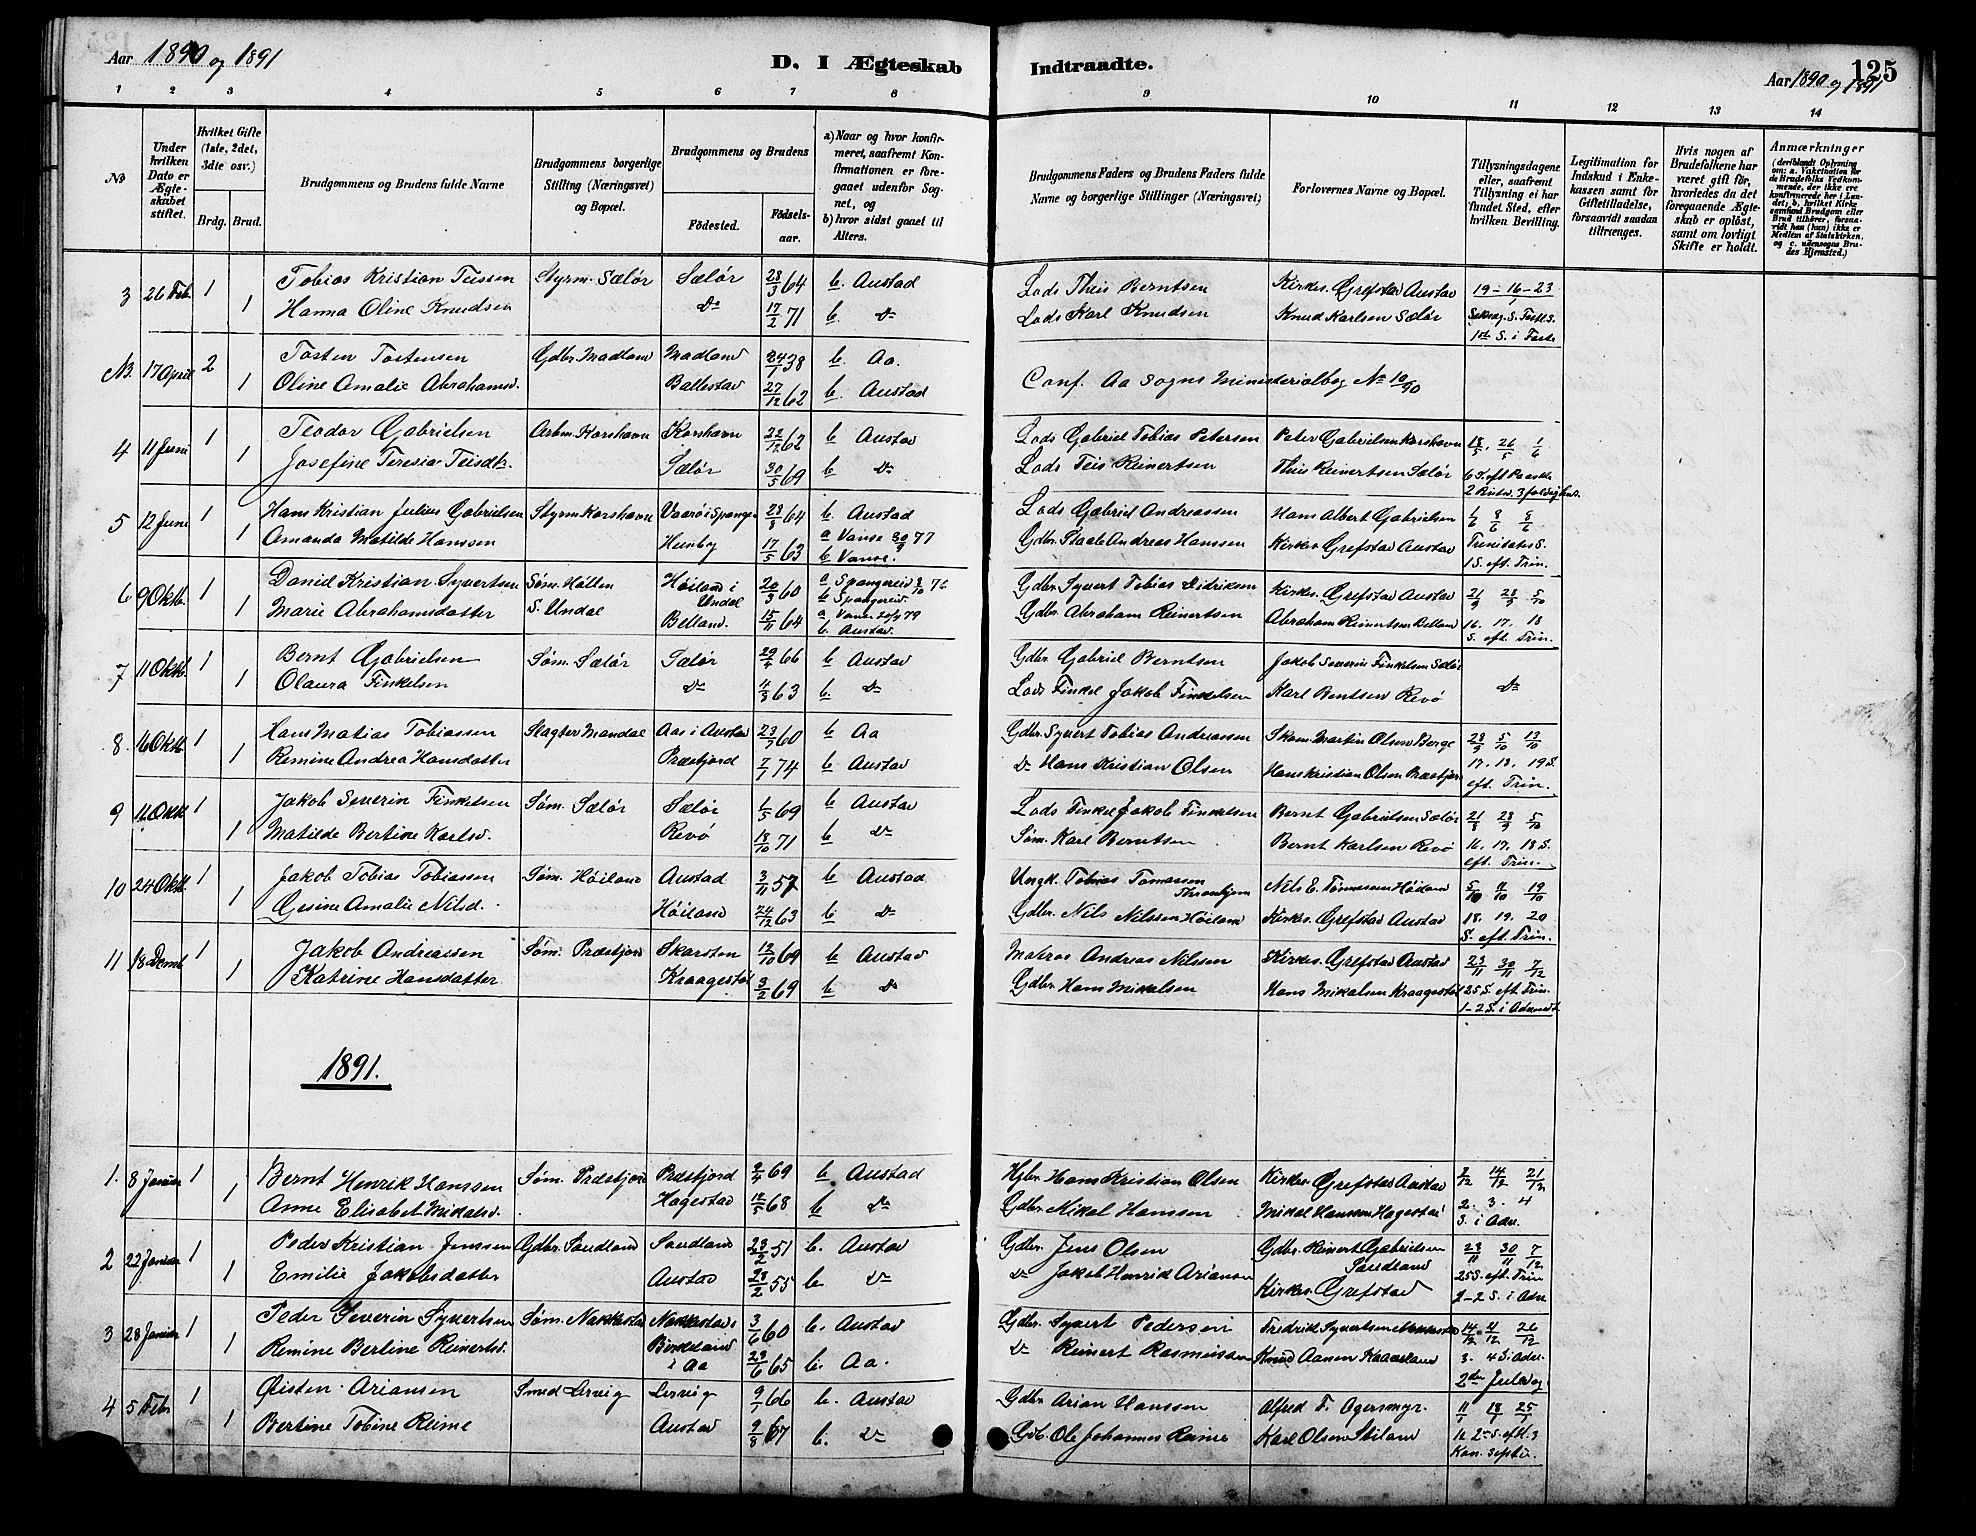 Aar 1890 og 1891
D. I Ægteskab
Indtraadte.
Aar 1890 og 1891
125
1 2 3 4 5 6 7 8
9 10 11 12 13 14
No
Under hvilken Dato er Ægteskabet stiftet.
Hvilket Gifte (1ste, 2det, 3die osv.)
Brdg. Brud.
Brudgommens og Brudens fulde Navne
Brudgommens borgerlige Stilling (Næringsvei) og Bopæl.
Brudgommens og Brudens
Fødested.
Fødselsaar.
a) Naar og hvor konfirmeret, saafremt Konfirmationen er foregaaet udenfor Sognet, og
b) hvor sidst gaaet til Alters.
Brudgommens Faders og Brudens Faders fulde Navne og borgerlige Stillinger (Næringsvei)
Forlovernes Navne og Bopæl.
Tillysningsdagene eller, saafremt Tillysning ei har fundet Sted, efter hvilken Bevilling.
Legitimation for Indskud i Enkekassen samt for Giftetilladelse, forsaavidt saadan tiltrænges.
Hvis nogen af Brudefolkene har været gift før, hvorledes da det foregaaende Ægteskab er opløst, samt om lovligt Skifte er holdt.
Anmærkninger (deriblandt Oplysning om: a. Vakcination for de Brudefolks Vedkommende, der ikke ere konfirmerede her i Landet, b. hvilket Kirkesamfund Brudgom eller Brud tilhører, forsaavidt han (hun) ikke er Medlem af Statskirken, og c. udensogns Brudes Hjemsted.)
3 26 Feb. 1 Tobias Kristian Teissen Styrm. Sælør Sælør 23/3 64 b. Austad Lods Theis Berntsen Kirkes. Grefstad Austad 19 - 16 - 23
1 Hanna Oline Knudsen Do 17/2 71 b Do Lods Karl Knudsen Knud Karlsen Sælør
1ste S. i Faste
NB. 17 April 2 Tosten Tostensen Gdbr. Madland Madland 24/1 38 b. Aa. Conf. Aa Sogns Ministerialbog No 10/90
1 Oline Amalie Abrahamsd. Ballestad 27/12 62 b. Austad
4 11 Juni 1 Teodor Gabrielsen Arbm. Korshavn Korshavn 22/12 62 b Austad Lods Gabriel Tobias Petersen Peter Gabrielsen Korshavn 18/5. 26/5 1/6
1 Josefine Teresia Teisdtr. Sælør 30/5 69 b Do Lods Teis Reinertsen Theis Reinertsen Sælør 6 S. eft Paaske
5 12 Juni 1 Hans Kristian Julius Gabrielsen Styrm Korshavn 23/8 64 b. Austad Lods Gabriel Andreassen Hans Albert Gabrielsen 1/6 8/6 8/6
1 Amanda Matilde Hanssen 17/5 63 a Vanse 30/9 77 b Vanse. Gdbr. Staale Andreas Hanssen Kirkes. Grefstad Austad Trinitatis S.
1 S. eft. Trin.
6 9 Oktb. 1 Daniel Kristian Syvertsen Søm. Hollen Høiland i Undal 20/3 60 a Spangereid 8/10 76 b Spangereid. Gdbr. Syvert Tobias Didriksen Kirkes. Grefstad Austad 21/9 28/9 5/10
1 Marie Abrahamsdatter S. Undal Belland. 15/11 64 b. Austad. Gdbr. Abraham Reinertsen Abraham Reinertsen Belland 16. 17. 18
S. eft. Trin.
7 11 Oktb. 1 Bernt Gabrielsen Søm. Sælør Sælør 66 b Austad Gdbr Gabriel Berntsen Jakob Severin Finkelsen Sælør
1 Olaura Finkelsen Do 4/3 63 b. Do Lods Finkel Jakob Finkelsen Karl Berntsen Revø Do
8. 16 Oktb. 1 Hans Matias Tobiassen Slagter Mandal Aas i Austad 23/7 60 b Aa Gdbr. Syvert Tobias Andreassen Skom. Martin Olsen Berge 28/9 5/10 13/10
1 Remine Andrea Hansdatter Præstfjord 7/1 74 b Austad Do Hans Kristian Olsen Hans Kristian Olsen Præstfjord 17. 18. 19 S.
eft. Trin.
9 16 Oktb 1 Jakob Severin Finkelsen Søm. Sælør Sælør 1/5 69 b Austad Lods Finkel Jakob Finkelsen Bernt Gabrielsen Sælør 21/9 28/9 5/10
1 Matilde Bertine Karlsd. Revø 18/10 71 b Do Søm. Karl Berntsen Bernt Karlsen Revø 16. 17. 18 S.
eft. Trin.
10 24 Oktb. 1 Jakob Tobias Tobiassen Søm. Høiland Austad 3/11 57 b Austad Ungk. Tobias Tomassen Thronhjem Nils E. Tønnessen Høiland 5/10 11/10 19/10
1 Gesine Amalie Nilsd. Høiland 24/12 63 b Do Gdbr. Nils Nilssen Høiland Kirkes. Grefstad Austad 18. 19. 20
S. eft. Trin.
11 18 Decmb. 1 Jakob Andreassen Søm. Præstfjord Skarsten 12/10 69 b Austad Matros Andreas Nilssen Kirkes. Grefstad Austad 23/11 30/11 7/12
1 Katrine Hansdatter Kraagestøl 3/2 69 b Do Gdbr. Hans Mikalsen Hans Mikalsen Kraagestøl 25 S. eft Trin.
1-2 S. i Advent
1891.
1. 8 Januar 1 Bernt Henrik Hanssen Søm. Præstfjord Præstfjord 2/4 69 b Austad Hjbr. Hans Kristian Olsen Kirkes. Grefstad Austad 7/12 14/12 21/12
1 Anne Elisabet Mikalsd. Hagestad 12/5 68 b Do Gdbr. Mikal Hanssen Mikal Hanssen Hagestad 2. 3. 4
S. i Adv.
2 22 Januar 1 Peder Kristian Jenssen Gdbr. Sandland Sandland 23/2 51 b. Austad Gdbr. Jens Olsen Gdbr. Reinert Gabrielsen Sandland 23/11 30/11 7/12
1 Emilie Jakobsdatter Austad 28/2 55 b. Do Do Jakob Henrik Ariansen Kirkes. Grefstad 25 S. eft. Trin
1-2 S. i Adv.
3 28 Januar 1 Peder Severin Syvertsen Søm. Nakkestad Nakkestad 3/6 60 b. Austad Gdbr. Syvert Pedersen Fredrik Syvertsen Nakkestad 14/12 21/12 26/12
1 Remine Bertine Reinertsd. Birkeland i Aa 29/6 65 b. Aa. Do Reinert Rasmussen Knud Aanen Kaaveland 3. 4 S. i Adv.
2den Juledag
4 5 Febr 1 Øisten Ariansen Smed Lervig Lervig 9/1 66 b. Austad Gdbr Arian Hanssen Alfred T. Agersmyr. 11/1 18/1 25/1
1 Bertine Tobine Reime Austad 9/8 67 b. Do Gdb. Ole Johannes Reime Karl Olsen Skiland